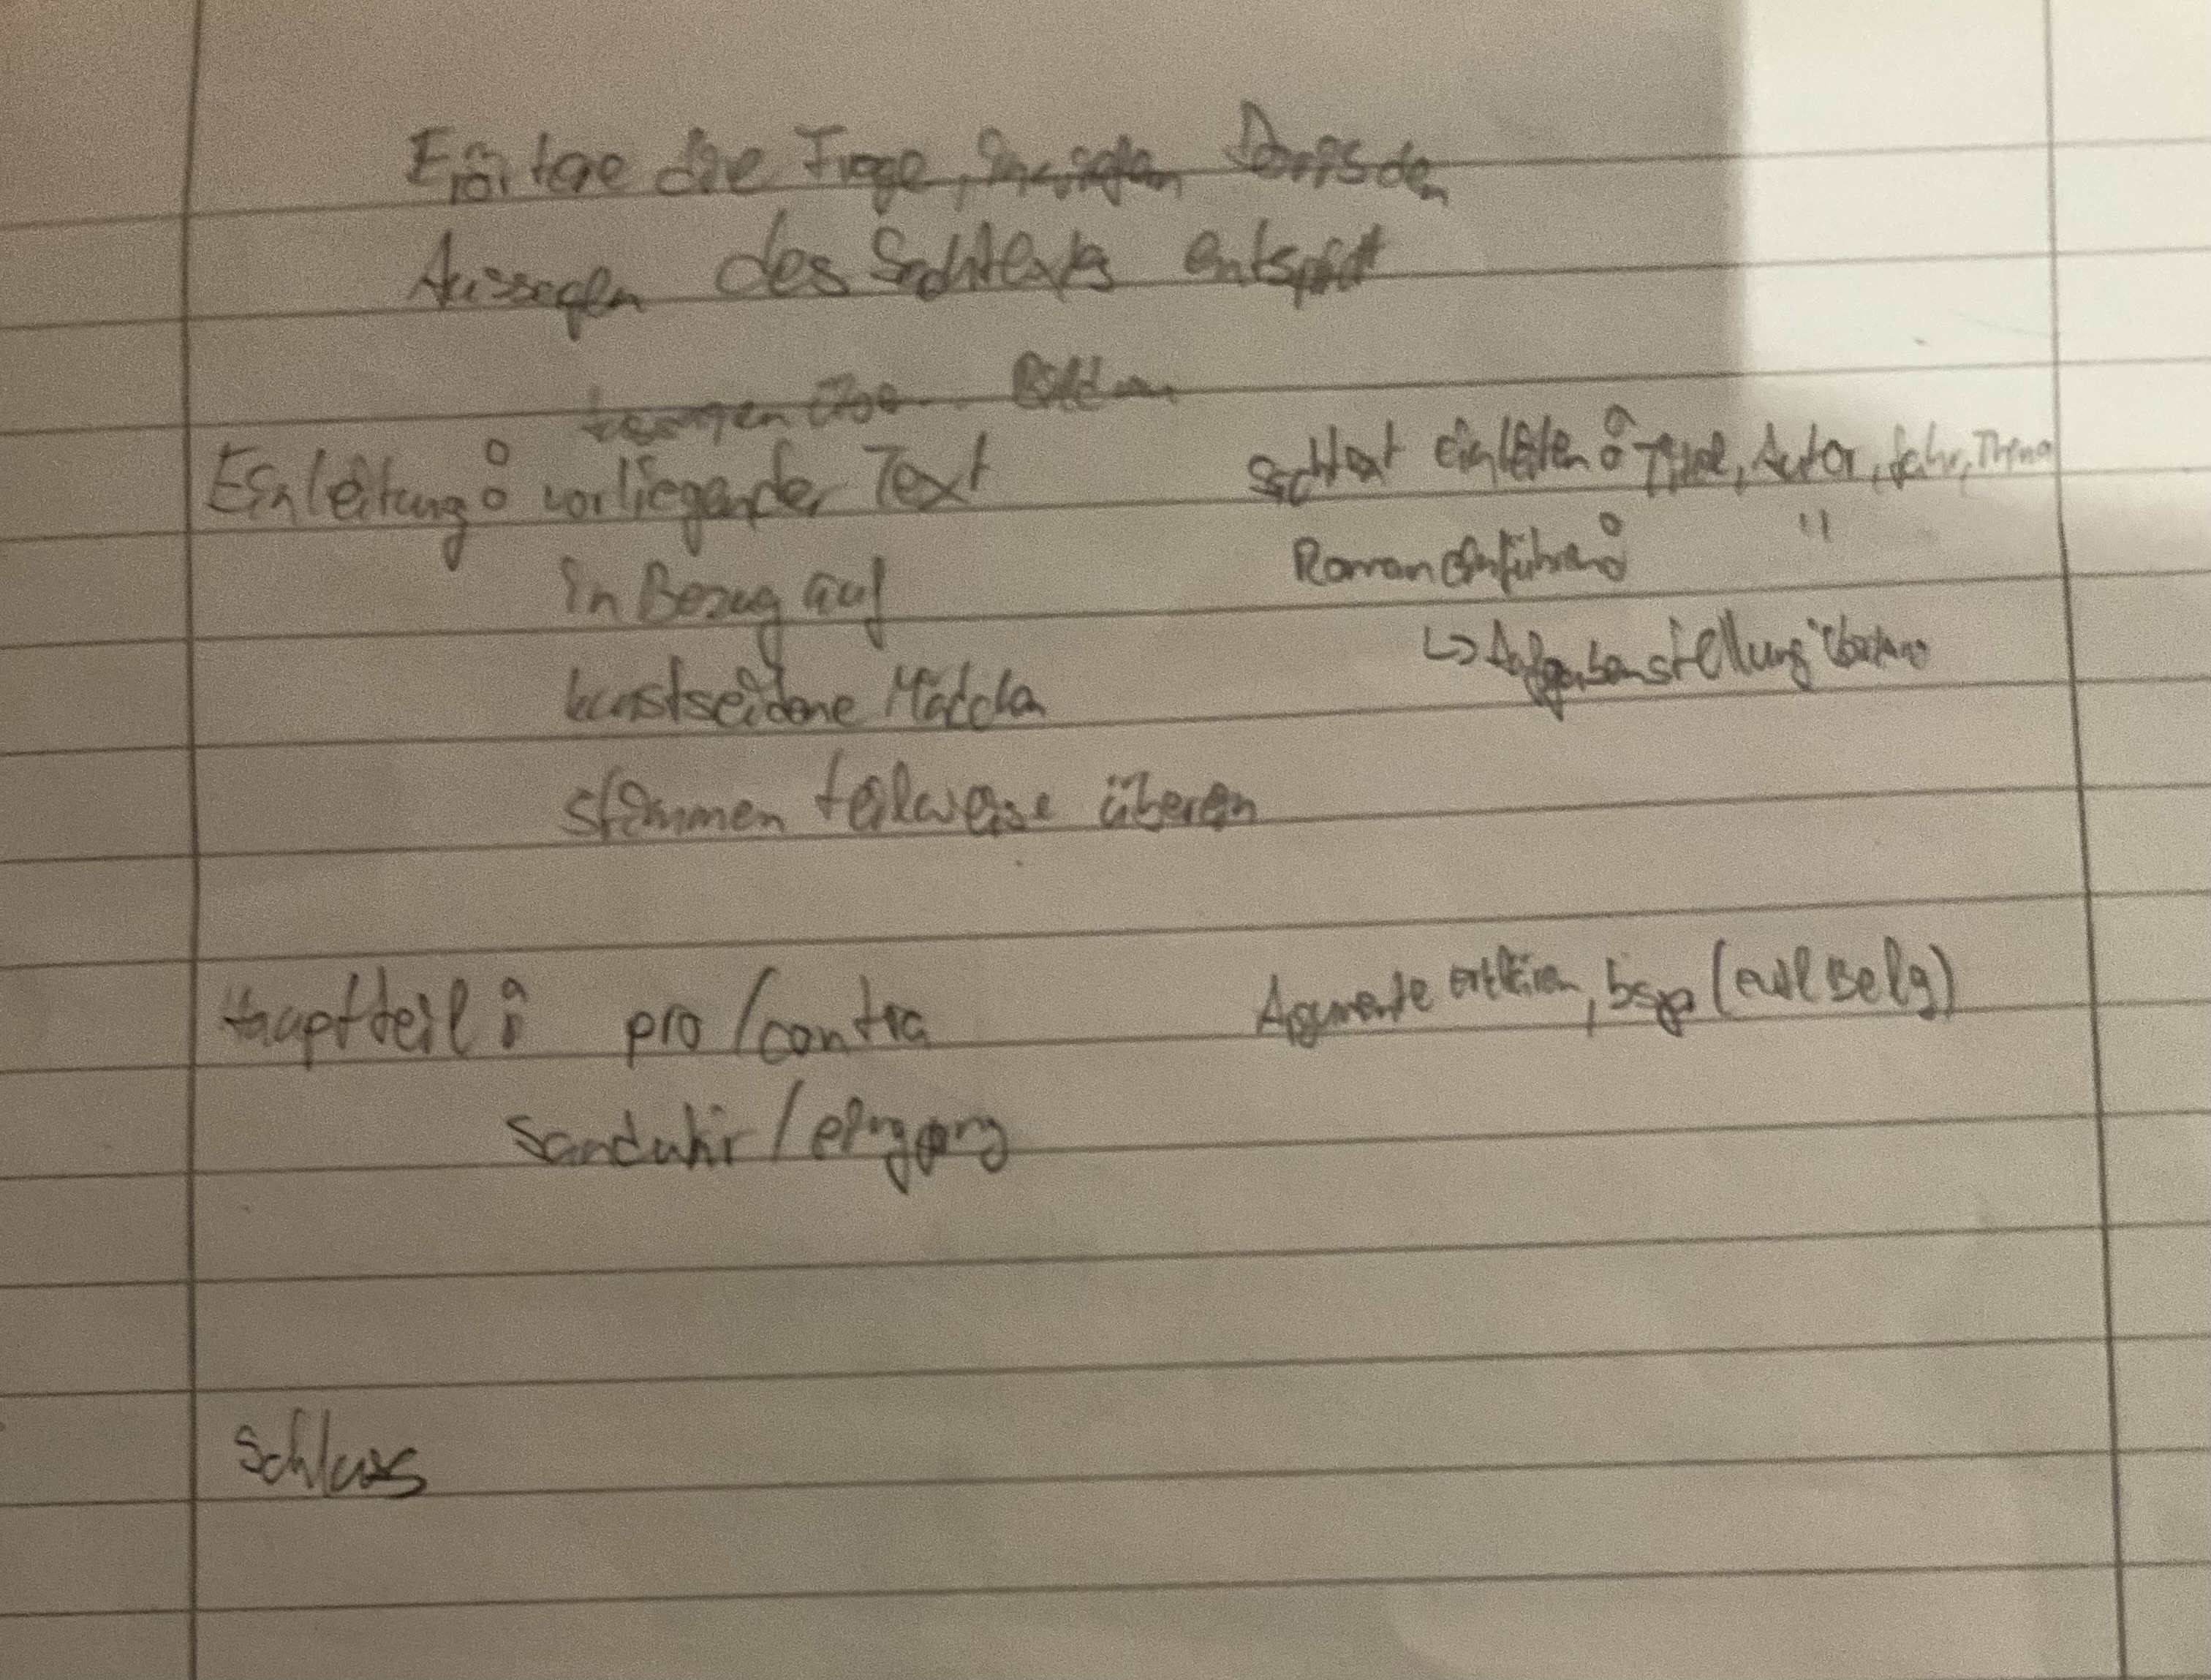 Erörtere die Frage, inwiefern Doris den
Aussagen des Sachtexts entspricht
Einleitung: vorliegender Text
in Bezug auf
kunstseidene Mädchen
stimmen teilweise überein
Sachtext einleiten: Titel, Autor, Jahr, Thema
Roman einführend: "
↳ Aufgabenstellung
Hauptteil: pro/contra
Sanduhr/eingang
Argumente erklären, bsp (evtl Beleg)
Schluss